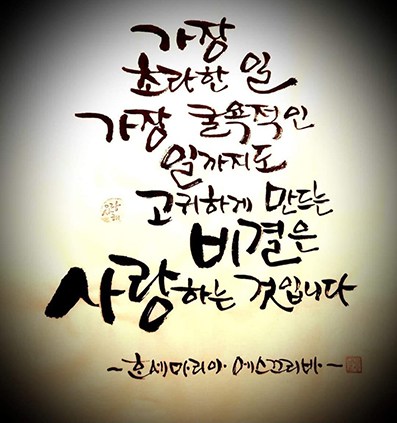 가장
초라한 일
가장 굴욕적인
일까지도
고귀하게 만드는
비결은
사랑하는 것입니다
~호세마리아 에스끄리바~